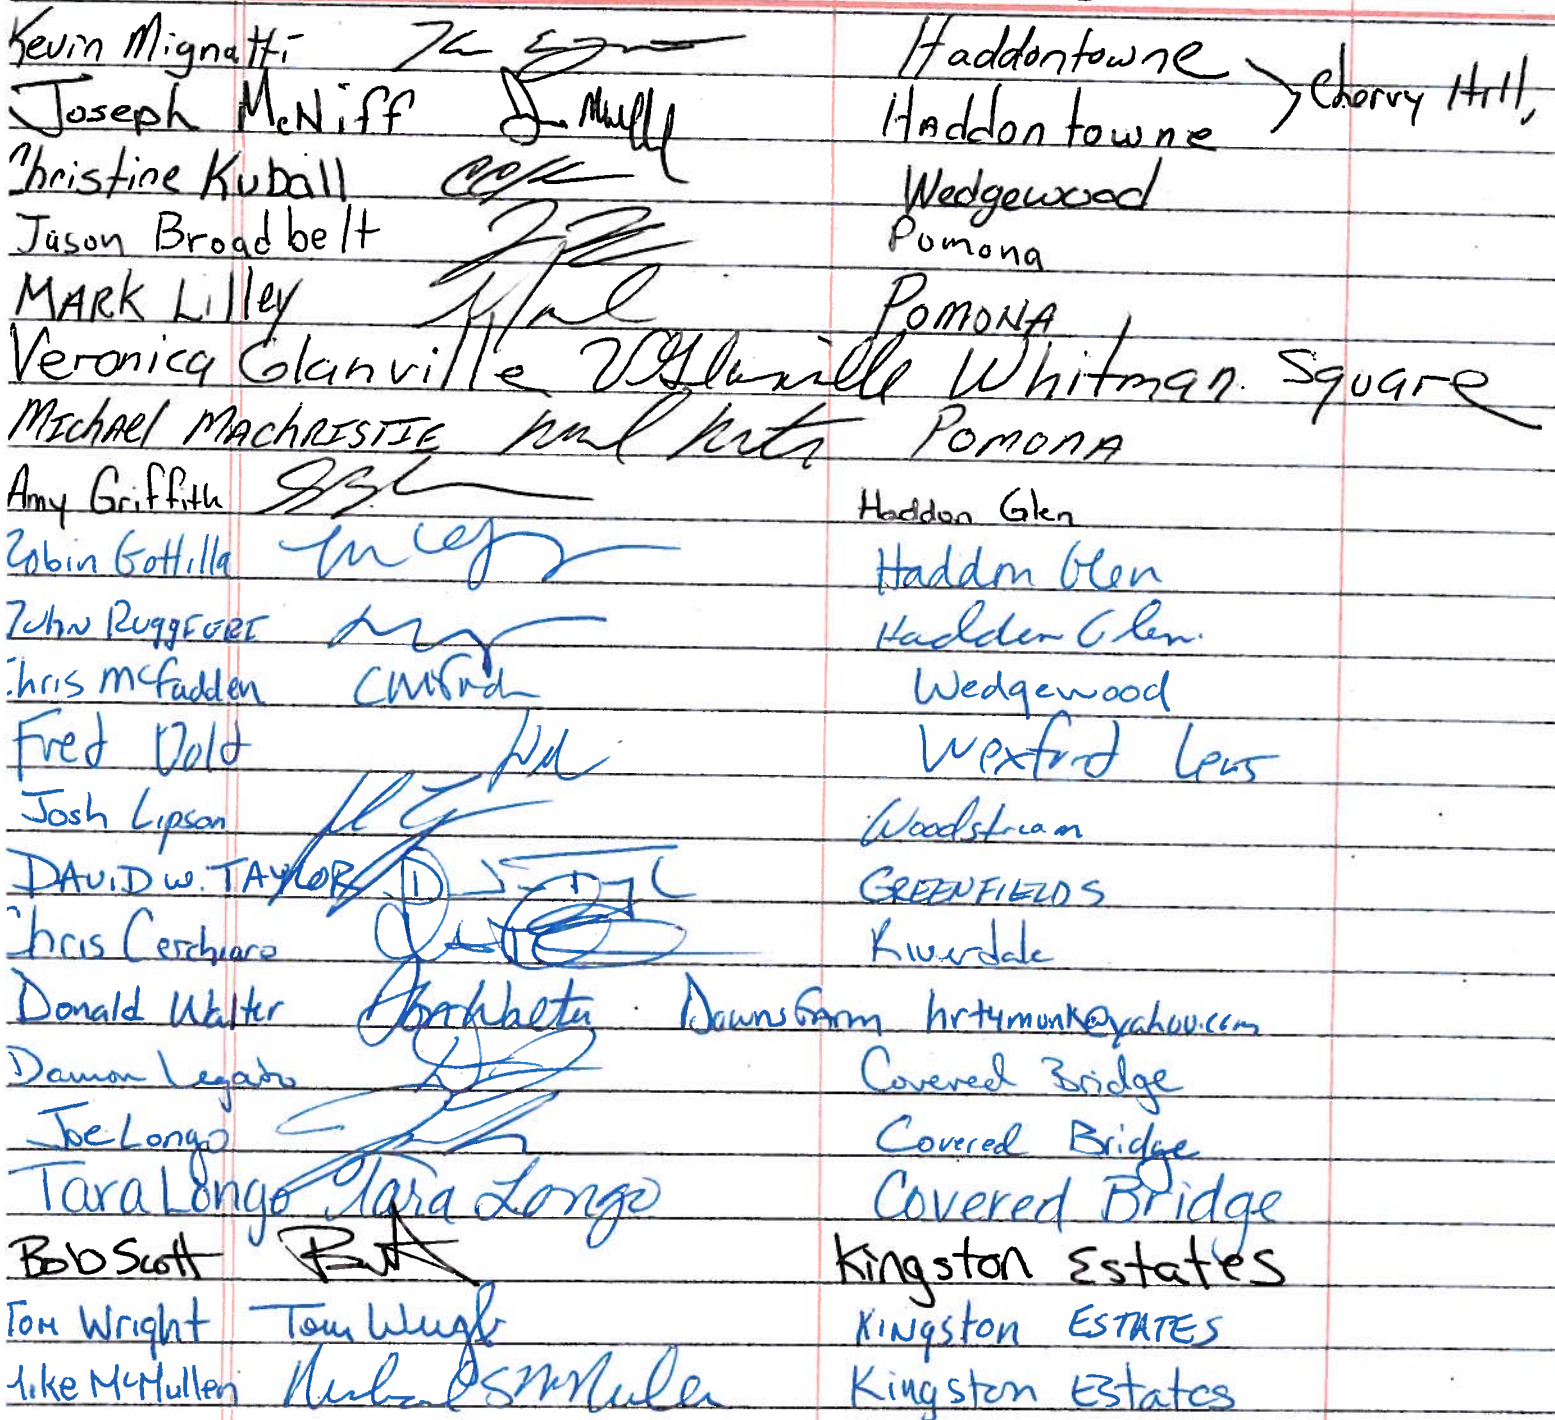 Kevin Mignatti Haddontowne
Joseph McNiff Haddontowne > Cherry Hill,
Christine Kuball Wedgewood
Jason Broadbelt Pomona
MARK Lilley POMONA
Veronica Glanville VGlanville Whitman Square
Michael MACHRISTIE POMONA
Amy Griffith Haddon Glen
Robin Gottilla Haddon Glen
John Haddon Glen.
Chris McFadden Wedgewood
Fred Dold Wexford
Josh Lipson Woodstream
DAViD W. TAYLOR GREENFIELDS
Chris Cerchiaro Riverdale
Donald Walter Downs Farm hrtymunk@yahoo.com
Damon Legato Covered Bridge
Joe Longo Covered Bridge
Tara Longo Tara Longo Covered Bridge
Bob Scott Kingston Estates
Tom Wright Tom Wright Kingston ESTATES
Mike McMullen Kingston Estates